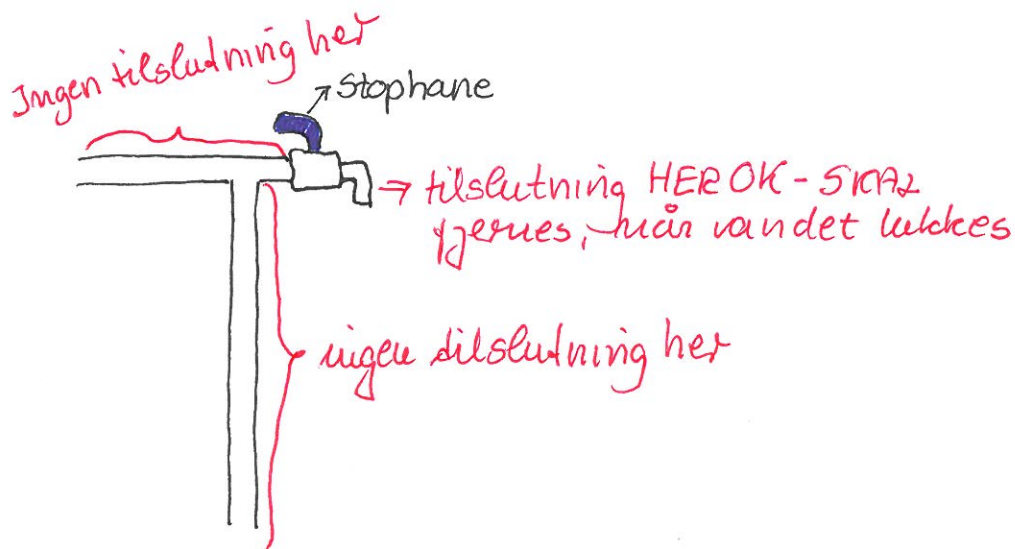 Ingen tilslutning her
Stophane
tilslutning HER OK - SKAL
fjernes, når vandet lukkes
ingen tilslutning her